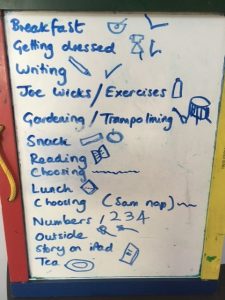 Breakfast
Getting dressed
Writing
Joe Wicks / Exercises
Gardening / Trampolining
Snack
Reading
Choosing
Lunch
Choosing (Sam nap)
Numbers 1234
Outside
Story on iPad
Tea